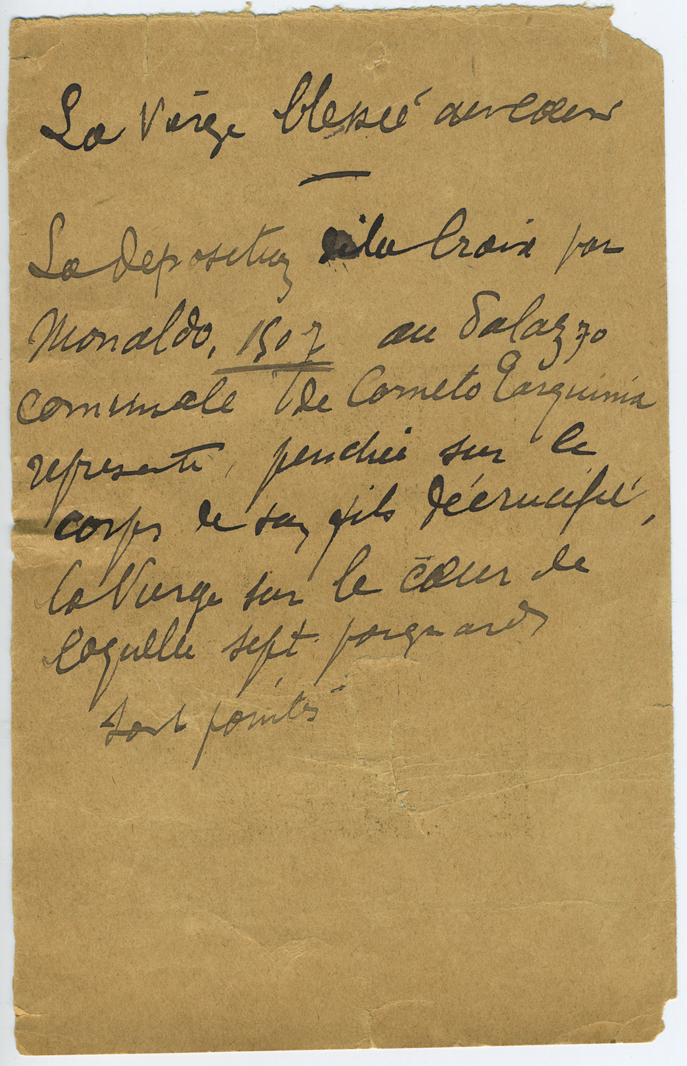 La Vierge blessée au cœur
La deposition de la Croix par
Monaldo, 1507 au Palazzo
comunale de Corneto Tarquinia
represente, penchée sur le
corps de son fils décrucifié,
la Vierge sur le cœur de
laquelle sept poignards
sont pointés